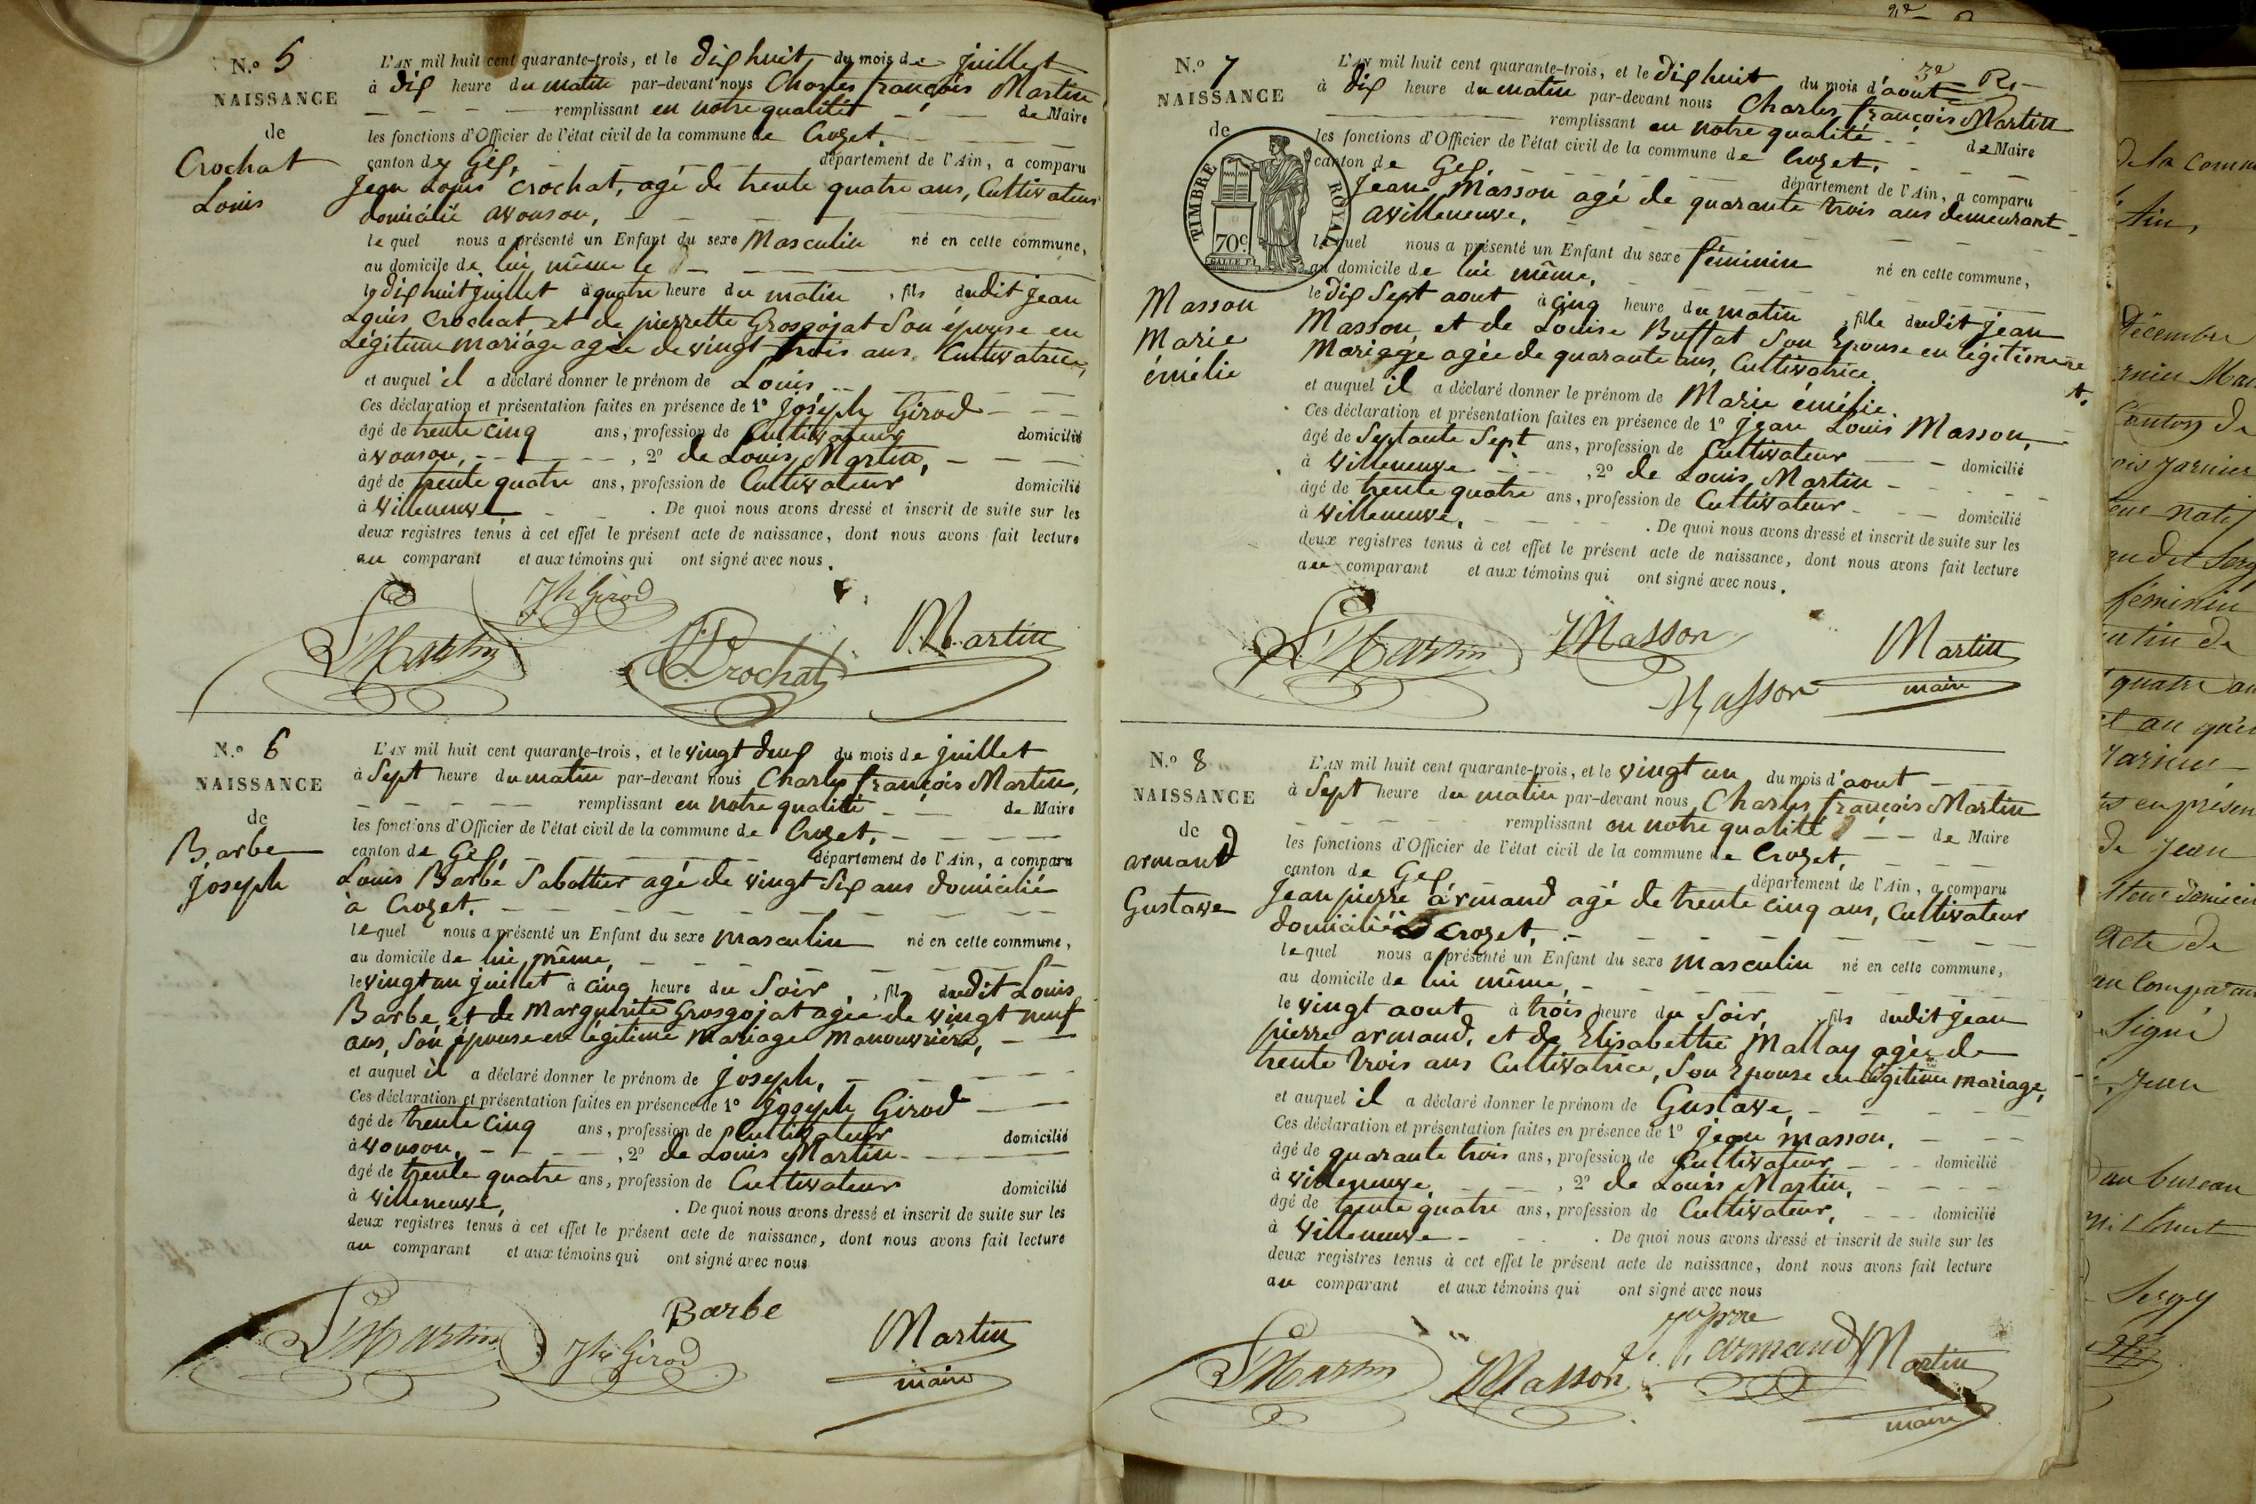 N.º 5
NAISSANCE
de
Crochat
Louis
L'AN mil huit cent quarante-trois, et le dix huit du mois de juillet
à dix heure du matin par-devant nous Charles françois Martin
remplissant en notre qualité de Maire
les fonctions d'Officier de l'état civil de la commune de Crozet,
canton de Gex, département de l'Ain, a comparu
Jean Louis Crochat, agé de trente quatre ans, Cultivateur
domicilié avouson,
lequel nous a présenté un Enfant du sexe Masculin né en cette commune,
au domicile de lui même le
le dix huit juillet à quatre heure du matin, fils dudit jean
Louis Crochat et de pierrette Grosgojat Son épouse en
Légitime mariage agée de vingt trois ans, Cultivatrice,
et auquel il a déclaré donner le prénom de Louis
Ces déclaration et présentation faites en présence de 1º joséph Girod
âgé de trente cinq ans, profession de Cultivateur domicilié
à vouson, , 2º de Louis Martin,
âgé de trente quatre ans, profession de Cultivateur domicilié
à villeneuve . De quoi nous avons dressé et inscrit de suite sur les
deux registres tenus à cet effet le présent acte de naissance, dont nous avons fait lecture
au comparant et aux témoins qui ont signé avec nous.
Jh Girod
L Martin
Crochat
Martin
N.º 6
NAISSANCE
de
Barbe
joseph
L'AN mil huit cent quarante-trois, et le vingt deux du mois de juillet
à Sept heure du matin par-devant nous Charles françois Martin,
remplissant en notre qualité de Maire
les fonctions d'Officier de l'état civil de la commune de Crozet,
canton de Gex département de l'Ain, a comparu
Louis Barbe Sabottier agé de vingt Six ans domicilié
à Crozet.
lequel nous a présenté un Enfant du sexe masculin né en cette commune,
au domicile de lui même,
le vingt un juillet à cinq heure du Soir, fils dudit Louis
Barbe et de Marguerite Grosgojat agée de vingt neuf
ans, Son épouse en légitime Mariage Manouvrière,
et auquel il a déclaré donner le prénom de joseph,
Ces déclaration et présentation faites en présence de 1º joseph Girod
âgé de trente cinq ans, profession de Cultivateur domicilié
à vouson, , 2º de Louis Martin
âgé de trente quatre ans, profession de Cultivateur domicilié
à villeneuve, . De quoi nous avons dressé et inscrit de suite sur les
deux registres tenus à cet effet le présent acte de naissance, dont nous avons fait lecture
au comparant et aux témoins qui ont signé avec nous
L Martin
Jh Girod
Barbe
Martin
maire
N.º 7
NAISSANCE
de
TIMBRE ROYAL
70c.
Masson
Marie
émélie
L'AN mil huit cent quarante-trois, et le dix huit du mois d'aout
à dix heure du matin par-devant nous Charles françois Martin
remplissant en notre qualité de Maire
les fonctions d'Officier de l'état civil de la commune de Crozet,
canton de Gex département de l'Ain, a comparu
Jean Masson agé de quarante trois ans demeurant
avilleneuve,
lequel nous a présenté un Enfant du sexe féminin né en cette commune,
au domicile de lui même,
le dix Sept aout à cinq heure du matin, fille dudit jean
Masson et de Louise Buffat Son Epouse en légitime
Mariage agée de quarante ans, Cultivatrice.
et auquel il a déclaré donner le prénom de Marie émélie.
Ces déclaration et présentation faites en présence de 1º jean Louis Masson,
âgé de Septante Sept ans, profession de Cultivateur domicilié
à villeneuve , 2º de Louis Martin
âgé de trente quatre ans, profession de Cultivateur domicilié
à villeneuve, . De quoi nous avons dressé et inscrit de suite sur les
deux registres tenus à cet effet le présent acte de naissance, dont nous avons fait lecture
au comparant et aux témoins qui ont signé avec nous.
L Martin
Masson
Masson
Martin
maire
N.º 8
NAISSANCE
de
armand
Gustave
L'AN mil huit cent quarante-trois, et le vingt un du mois d'aout
à Sept heure du matin par-devant nous Charles françois Martin
remplissant en notre qualité de Maire
les fonctions d'Officier de l'état civil de la commune de Crozet,
canton de Gex département de l'Ain, a comparu
Jean pierre armand agé de trente cinq ans, Cultivateur
domicilié à Crozet,
lequel nous a présenté un Enfant du sexe masculin né en cette commune,
au domicile de lui même,
le vingt aout à trois heure du Soir, fils dudit jean
pierre armand, et de Elisabethe Mallay agée de
trente trois ans Cultivatrice, Son Epouse en légitime mariage,
et auquel il a déclaré donner le prénom de Gustave,
Ces déclaration et présentation faites en présence de 1º jean masson,
âgé de quarante trois ans, profession de Cultivateur domicilié
à villeneuve , 2º de Louis Martin,
âgé de trente quatre ans, profession de Cultivateur, domicilié
à villeneuve . De quoi nous avons dressé et inscrit de suite sur les
deux registres tenus à cet effet le présent acte de naissance, dont nous avons fait lecture
au comparant et aux témoins qui ont signé avec nous
L Martin
Masson
armand
Martin
maire
de la comm
Ain,
Décembre
Canton de
féminin
quatre
en présen
de Jean
acte de
au comparant
Signé
au bureau
Sergy